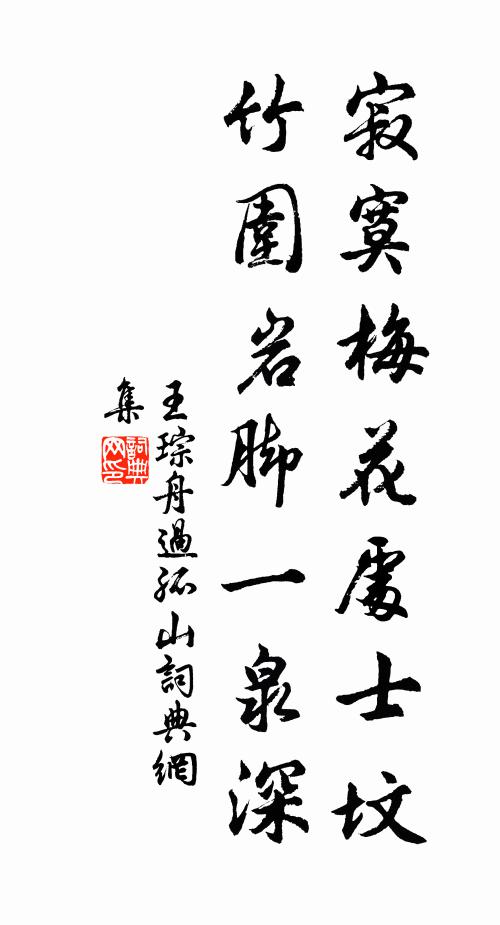 寂寞梅花處士坟
竹圍岩脚一泉深
王琮舟過孤山詞典網
集
詞典網印